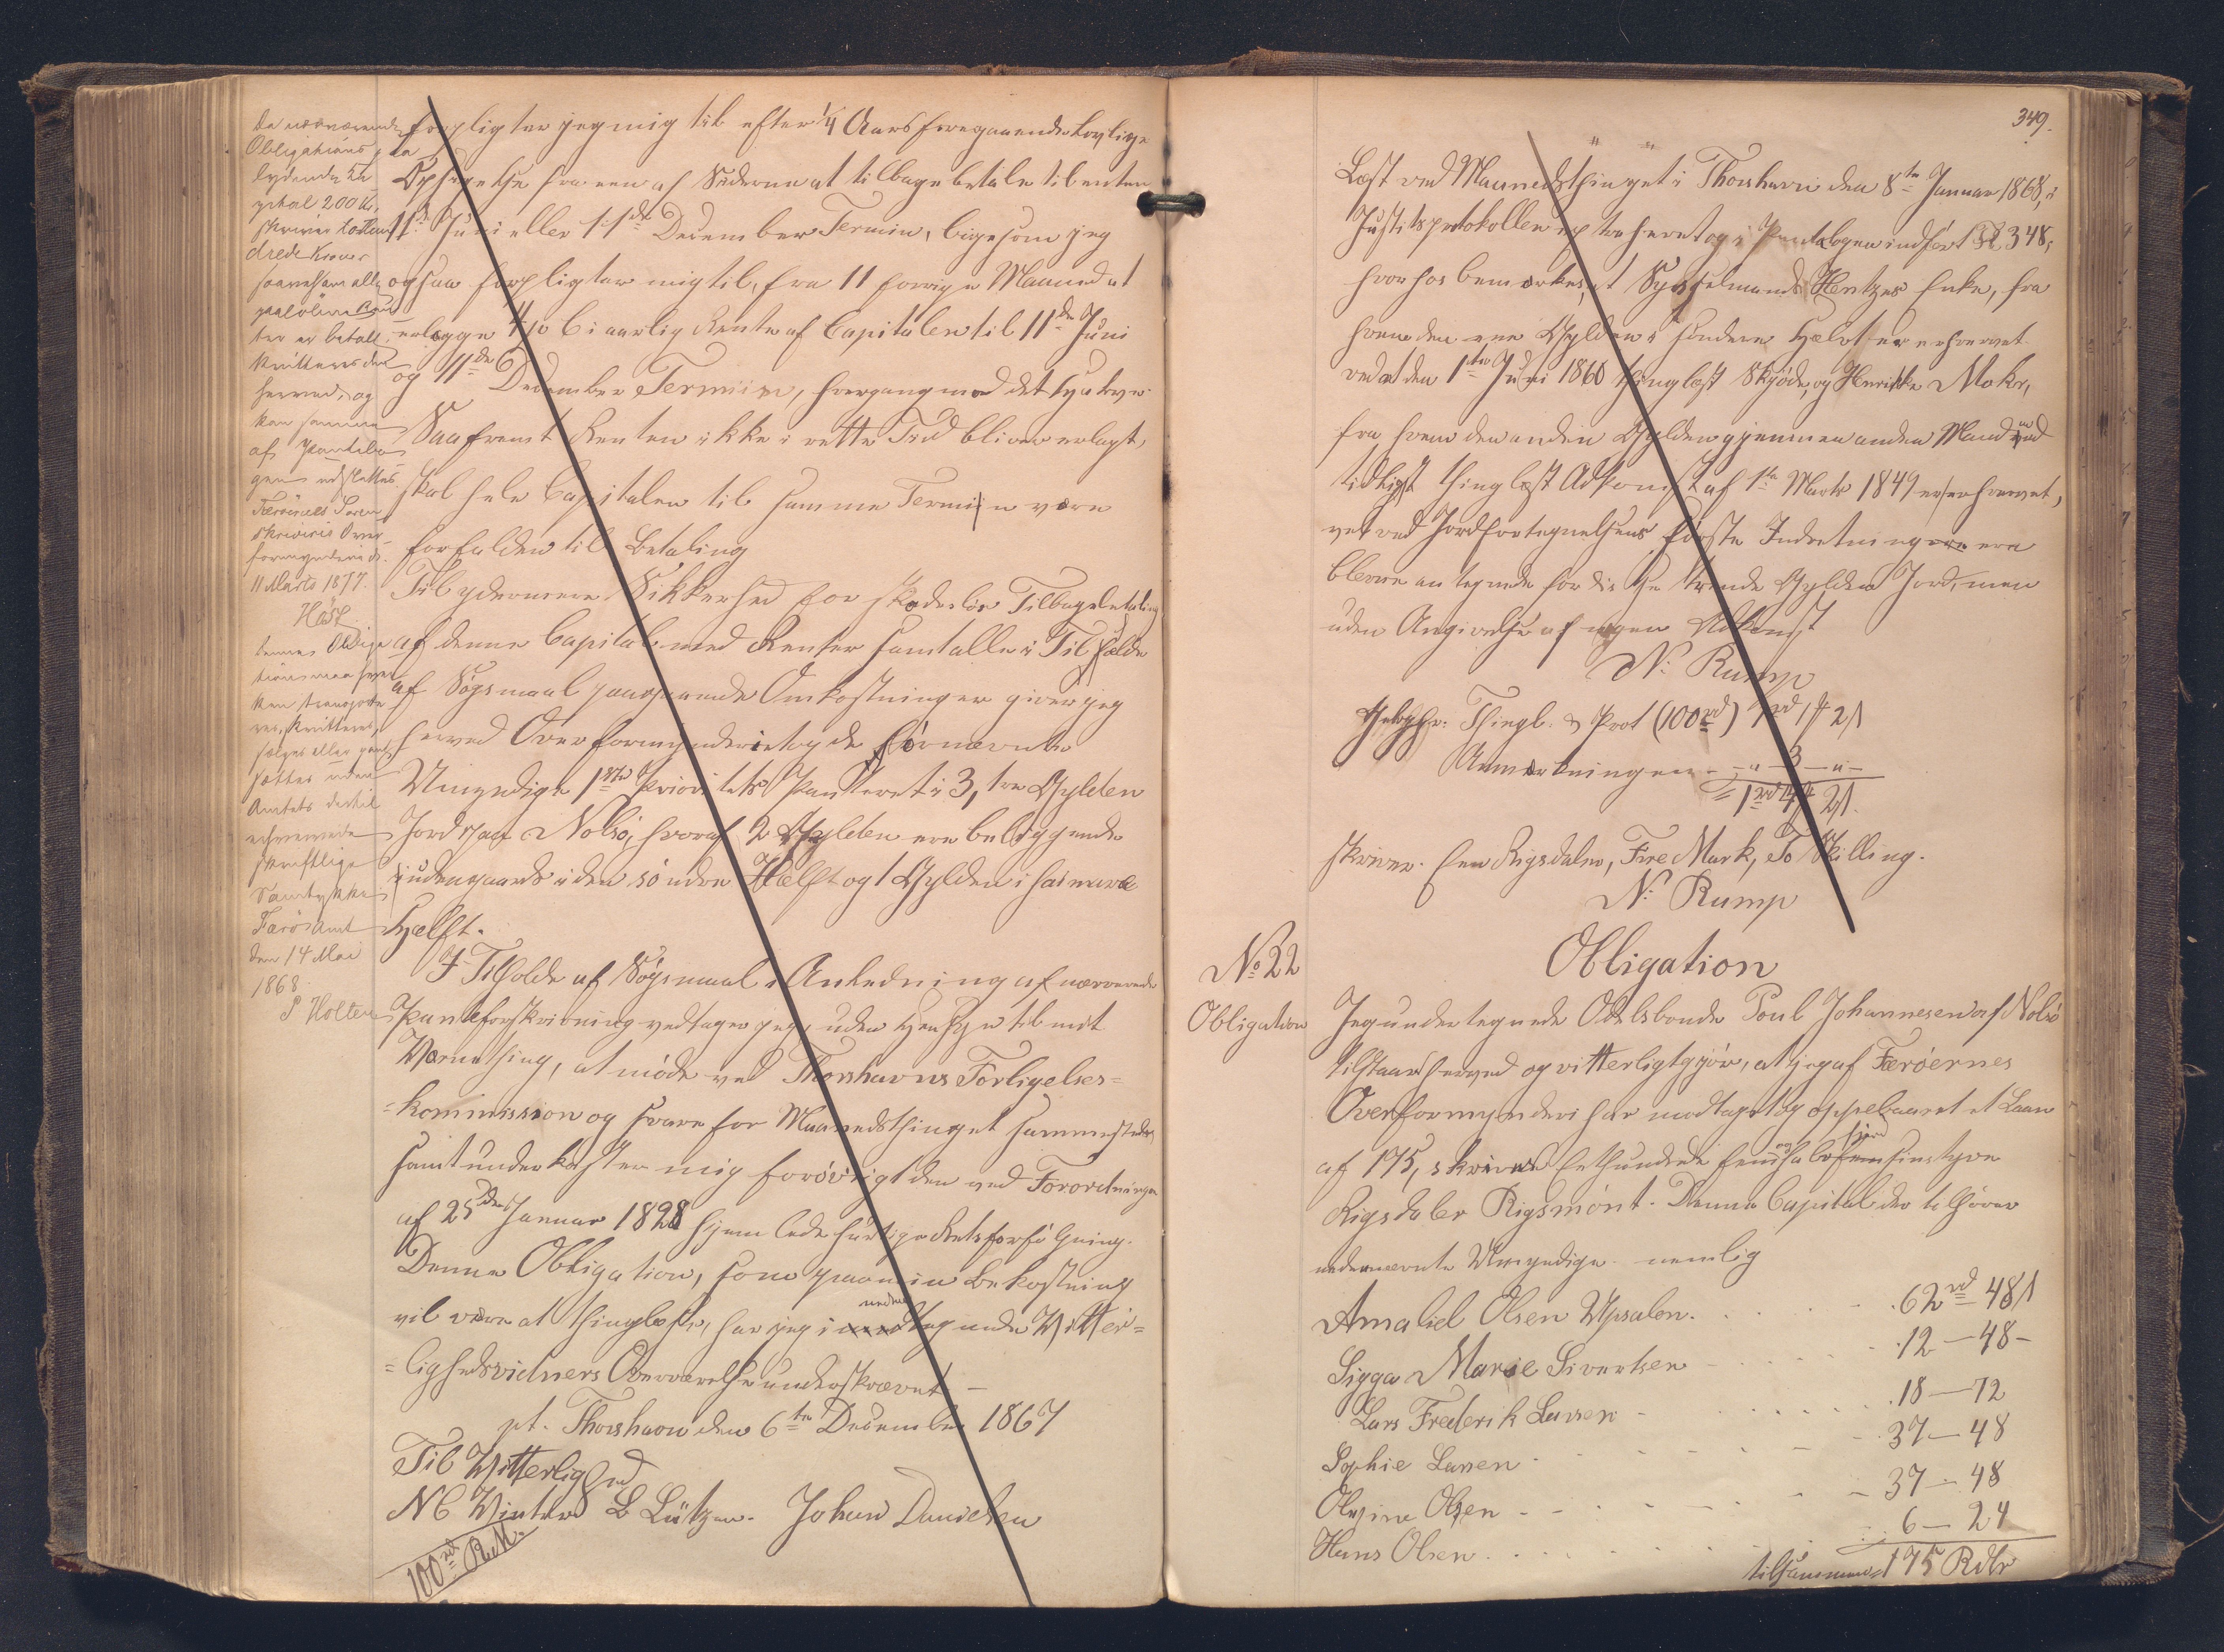 Da nærværende
Obligations paa
lydende Ca
pital 200 Kr,
skriver tohun
drede Kroner
saavelsom alle
paaløbne Ren
ter er betalt,
kvitteres den
herved, og
kan samme
af Pantebo
gen udslettes.
Færöernes Soren
skriveris Over
formynderi d.
11 Marts 1877.
HCM
Denne Obliga
tion maa hver
ken transporte
res, kvitteres,
sælges eller pant
sættes uden
Amtets dertil
erhvervede
skriftlige
Samtykke
Færö Amt
den 14 Mai
1868.
P Holten
forpligter jeg mig til efter 1/4 Aars foregaaende lovlige
Opsigelse fra een af Siderne at tilbagebetale til enten
11te Juni eller 11te December Termin, ligesom jeg
ogsaa forpligter mig til, fra 11 forrige Maaned at
erlægge 4 p% C. aarlig Rente af Capitalen til 11te Juni
og 11te December Termiin, hvergang med det halve.
Saafremt Renten ikke i rette Tid bliver erlagt,
skal hele Capitalen til samme Termin være
forfalden til Betaling
Til ydermere Sikkerhed for skadeslös Tilbagebetaling
af denne Capital med Renter samt alle i Tilfælde
af Sögsmaal paagaaende Omkostninger giver jeg
herved Overformynderiet og de förnævnte
Umyndige 1ste Prioritets Panteret i 3, tre Gylden
Jord paa Nolsö, hvoraf 2 Gylden ere beliggende
indengaards i den söndre Hælft og 1 Gylden i samme
Hælft.
I Tilfælde af Sögsmaal i Anledning af nærværende
Panteforskrivning vedtager jeg, uden Hensyn til mit
Værnething, at möde ved Thorshavns Forligelses=
=kommission og svare for Maanedsthinget sammesteds
samt underkaster mig forövrigt den ved Forordningen
af 25de Januar 1828 hjemlede hurtige Retsforfölgning.
Denne Obligation, som paa min Bekostning
vil være at thinglæse, har jeg i undertegnede Vitter=
=lighedsvidners Overværelse underskrevet
pt. Thorshavn den 6te December 1867
Til Vitterlighed
NC Winther L Lützen. Johan Danielsen
100rd R.M.
349.
" "
Læst ved Maanedsthinget i Thorshavn den 8te Januar 1868, i
Justitsprotokollen extraheret og i Pantebogen indfört Fol 348,
hvorhos bemærkes, at Sysselmand Hentzes Enke, fra
hvem den ene Gylden i söndre Hælvt er erhvervet
ved et den 1te Juni 1860 thinglæst Skjöde, og Henrikke Mohr,
fra hvem den anden Gylden gjennem anden Mand ved
tidligst thinglæst Adkomst af 1te Marts 1849 er erhvervet,
vel ved Jordfortegnelsens förste Indretning ere
blevne antegnede for disse tvende Gylden Jord, men
uden Angivelse af nogen Adkomst
N. Rump
Gebyhr: Thingl. & Prot (100rd) 1rd 1# 2ß
Anmærkningen - " - 3 - " -
= 1rd 4# 2ß.
skriver. Een Rigsdaler, Fire Mark, To Skilling.
N. Rump
No 22
Obligation
Obligation
Jeg undertegnede Odelsbonde Poul Johannesen af Nolsö
tilstaar herved og vitterligtgjör, at jeg af Færöernes
Overformynderi har modtaget og oppebaaret et Laan
af 175, skriver Eethundrede fem og halvfjerdsindstyve
Rigsdaler Rigsmönt. Denne Capital der tilhörer
nedennævnte Umyndige nemlig
Amaliel Olsen Upsalen. 62rd 48ß
Sigga Marie Sivertsen 12 — 48 -
Lars Frederik Larsen 18 — 72
Sophie Larsen 37 — 48
Olevine Olsen 37 — 48
Hans Olsen. 6 — 24
tilsammen 175 Rdlr